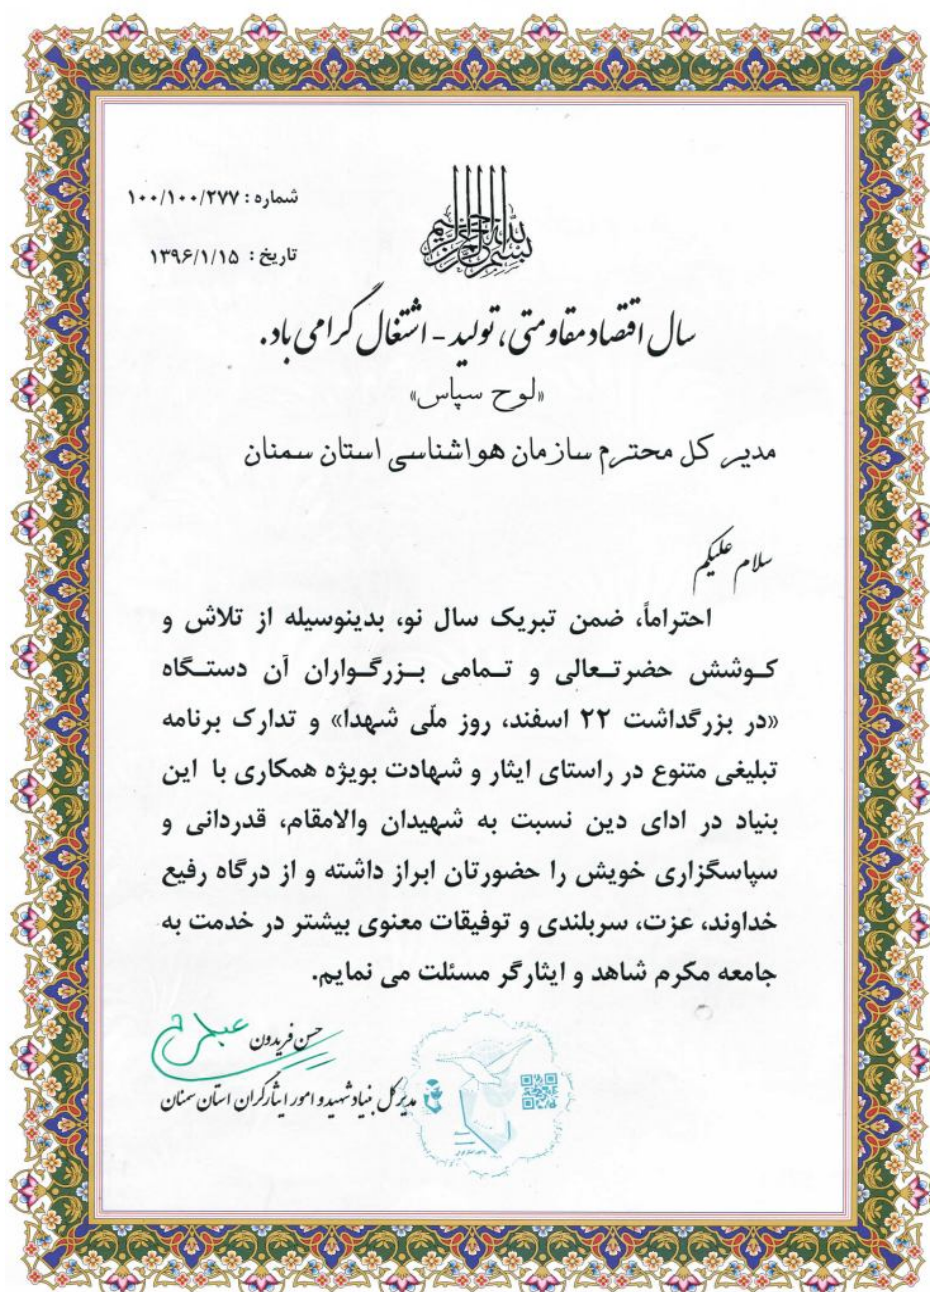 شماره : ۱۰۰/۱۰۰/۲۷۷
تاریخ : ۱۳۹۶/۱/۱۵
بسم الله الرحمن الرحیم
سال اقتصاد مقاومتی، تولید - اشتغال گرامی باد.
«لوح سپاس»
مدیر کل محترم سازمان هواشناسی استان سمنان
سلام علیکم
احتراماً، ضمن تبریک سال نو، بدینوسیله از تلاش و
کوشش حضرتعالی و تمامی بزرگواران آن دستگاه
«در بزرگداشت ۲۲ اسفند، روز ملّی شهدا» و تدارک برنامه
تبلیغی متنوع در راستای ایثار و شهادت بویژه همکاری با این
بنیاد در ادای دین نسبت به شهیدان والامقام، قدردانی و
سپاسگزاری خویش را حضورتان ابراز داشته و از درگاه رفیع
خداوند، عزت، سربلندی و توفیقات معنوی بیشتر در خدمت به
جامعه مکرم شاهد و ایثارگر مسئلت می نمایم.
حسن فریدون
مدیرکل بنیاد شهید و امور ایثارگران استان سمنان